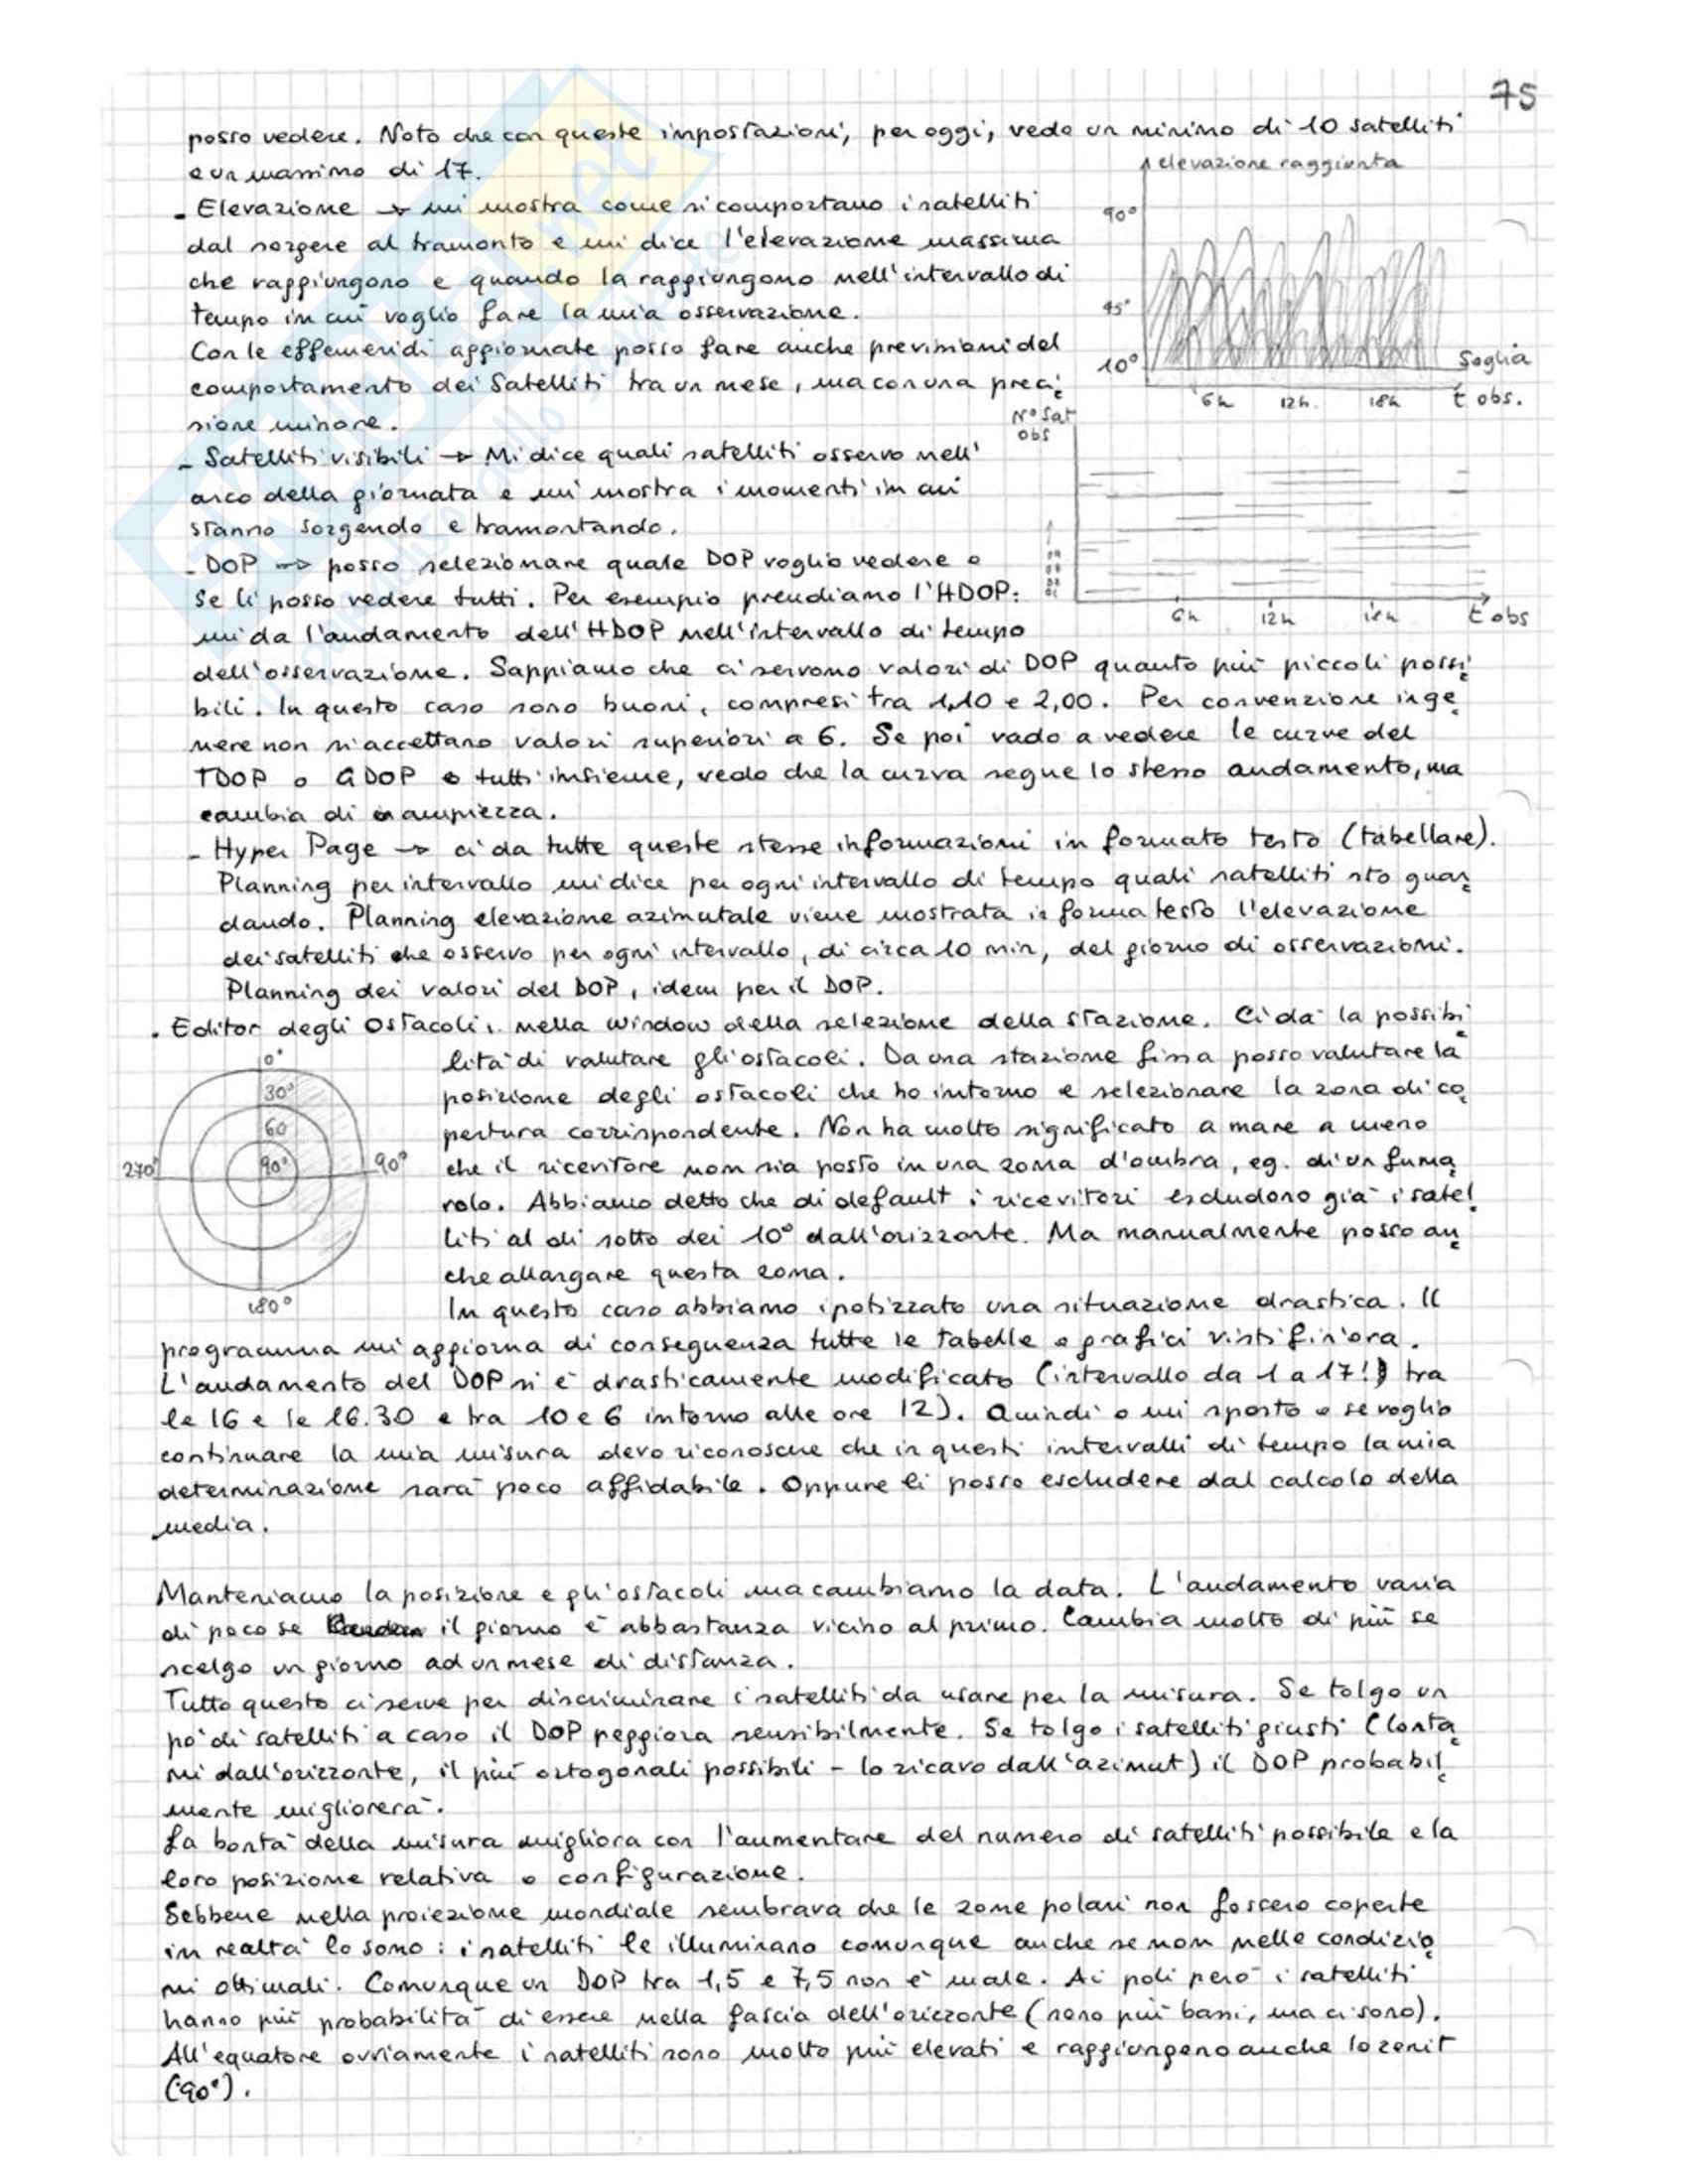 75
posso vedere. Noto che con queste impostazioni, per oggi, vedo un minimo di 10 satelliti
e un massimo di 17.
- Elevazione → mi mostra come si comportano i satelliti
dal sorgere al tramonto e mi dice l'elevazione massima
che raggiungono e quando la raggiungono nell'intervallo di
tempo in cui voglio fare la mia osservazione.
Con le effemeridi aggiornate posso fare anche previsioni del
comportamento dei satelliti tra un mese, ma con una preci
sione minore.
elevazione raggiunta
90°
45°
10°
Soglia
6h 12h. 18h t obs.
- Satelliti visibili → Mi dice quali satelliti osservo nell'
arco della giornata e mi mostra i momenti in cui
stanno sorgendo e tramontando.
N° Sat
obs
6h 12h 18h t obs
- DOP → posso selezionare quale DOP voglio vedere o
se li posso vedere tutti. Per esempio prendiamo l'HDOP:
mi da l'andamento dell'HDOP nell'intervallo di tempo
dell'osservazione. Sappiamo che ci servono valori di DOP quanto più piccoli possi
bili. In questo caso sono buoni, compresi tra 1,10 e 2,00. Per convenzione in ge
nere non si accettano valori superiori a 6. Se poi vado a vedere le curve del
TDOP o GDOP o tutti insieme, vedo che la curva segue lo stesso andamento, ma
cambia di ampiezza.
- Hyper Page → ci da tutte queste stesse informazioni in formato testo (tabellare).
Planning per intervallo mi dice per ogni intervallo di tempo quali satelliti sto guar
dando. Planning elevazione azimutale viene mostrata in forma testo l'elevazione
dei satelliti che osservo per ogni intervallo, di circa 10 min, del giorno di osservazioni.
Planning dei valori del DOP, idem per il DOP.
. Editor degli Ostacoli, nella window della selezione della stazione. Ci dà la possibi
lità di valutare gli ostacoli. Da una stazione fissa posso valutare la
posizione degli ostacoli che ho intorno e selezionare la zona di co
pertura corrispondente. Non ha molto significato a mare a meno
che il ricevitore non sia posto in una zona d'ombra, eg. di un fuma
rolo. Abbiamo detto che di default i ricevitori escludono già i satel
liti al di sotto dei 10° dall'orizzonte. Ma manualmente posso an
che allargare questa zona.
0°
30°
60
90°
270°
90°
180°
In questo caso abbiamo ipotizzato una situazione drastica. Il
programma mi aggiorna di conseguenza tutte le tabelle e grafici visti fin'ora.
L'andamento del DOP si è drasticamente modificato (intervallo da 1 a 17!) tra
le 16 e le 16.30 e tra 10 e 6 intorno alle ore 12). Quindi o mi sposto o se voglio
continuare la mia misura devo riconoscere che in questi intervalli di tempo la mia
determinazione sarà poco affidabile. Oppure li posso escludere dal calcolo della
media.
Manteniamo la posizione e gli ostacoli ma cambiamo la data. L'andamento varia
di poco se il giorno è abbastanza vicino al primo. Cambia molto di più se
scelgo un giorno ad un mese di distanza.
Tutto questo ci serve per discriminare i satelliti da usare per la misura. Se tolgo un
pò di satelliti a caso il DOP peggiora sensibilmente. Se tolgo i satelliti giusti (lonta
ni dall'orizzonte, il più ortogonali possibili - lo ricavo dall'azimut) il DOP probabil
mente migliorerà.
La bontà della misura migliora con l'aumentare del numero di satelliti possibile e la
loro posizione relativa o configurazione.
Sebbene nella proiezione mondiale sembrava che le zone polari non fossero coperte
in realtà lo sono: i satelliti le illuminano comunque anche se non nelle condizio
ni ottimali. Comunque un DOP tra 1,5 e 7,5 non è male. Ai poli però i satelliti
hanno più probabilità di essere nella fascia dell'orizzonte (sono più bassi, ma ci sono).
All'equatore ovviamente i satelliti sono molto più elevati e raggiungono anche lo zenit
(90°).